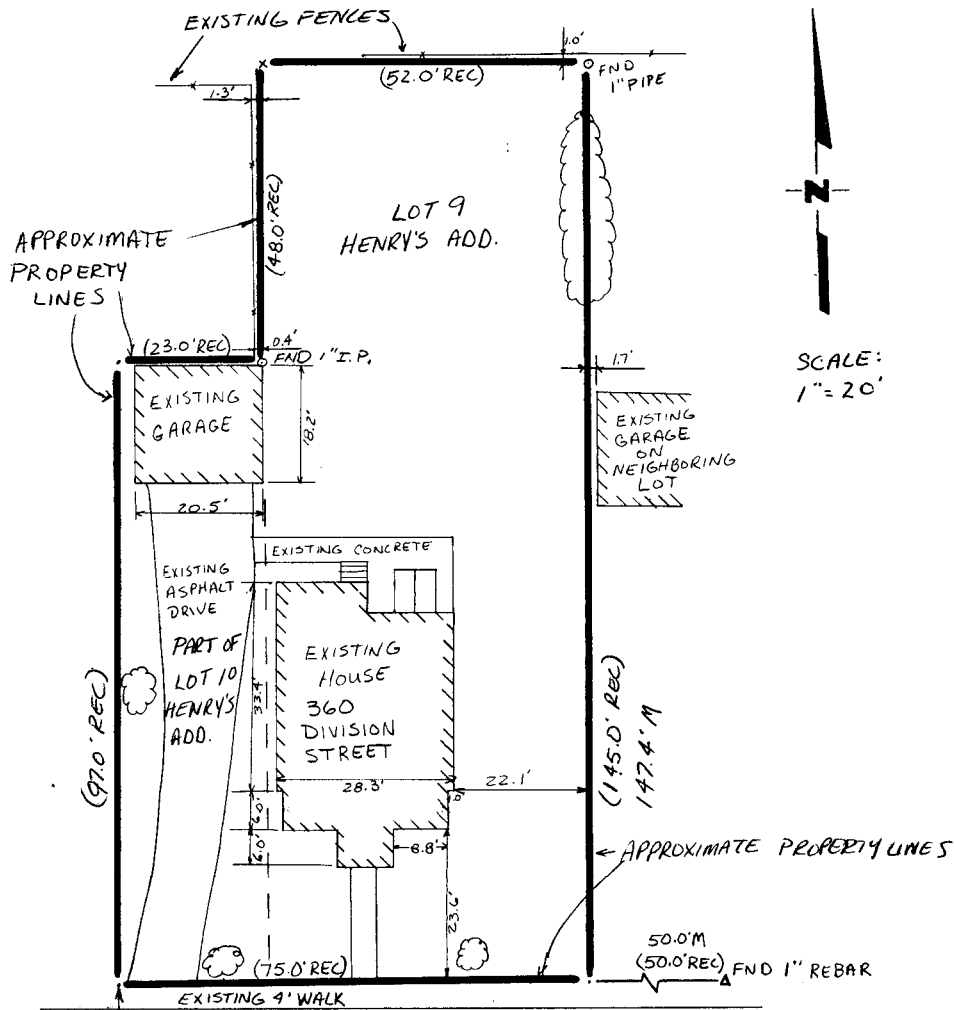 EXISTING FENCES
1.0'
(52.0' REC)
FND
1" PIPE
1.3'
N
LOT 9
HENRY'S ADD.
(48.0' REC)
APPROXIMATE
PROPERTY
LINES
(23.0' REC)
0.4'
FND 1" I.P.
1.7'
SCALE:
1" = 20'
EXISTING
GARAGE
18.2'
EXISTING
GARAGE
ON
NEIGHBORING
LOT
20.5'
EXISTING CONCRETE
EXISTING
ASPHALT
DRIVE
PART OF
LOT 10
HENRY'S
ADD.
EXISTING
HOUSE
360
DIVISION
STREET
33.4'
(97.0' REC)
(145.0' REC)
147.4' M
28.3'
22.1'
6.0'
6.0'
8.8'
23.6'
APPROXIMATE PROPERTY LINES
50.0' M
(50.0' REC)
FND 1" REBAR
(75.0' REC)
EXISTING 4' WALK